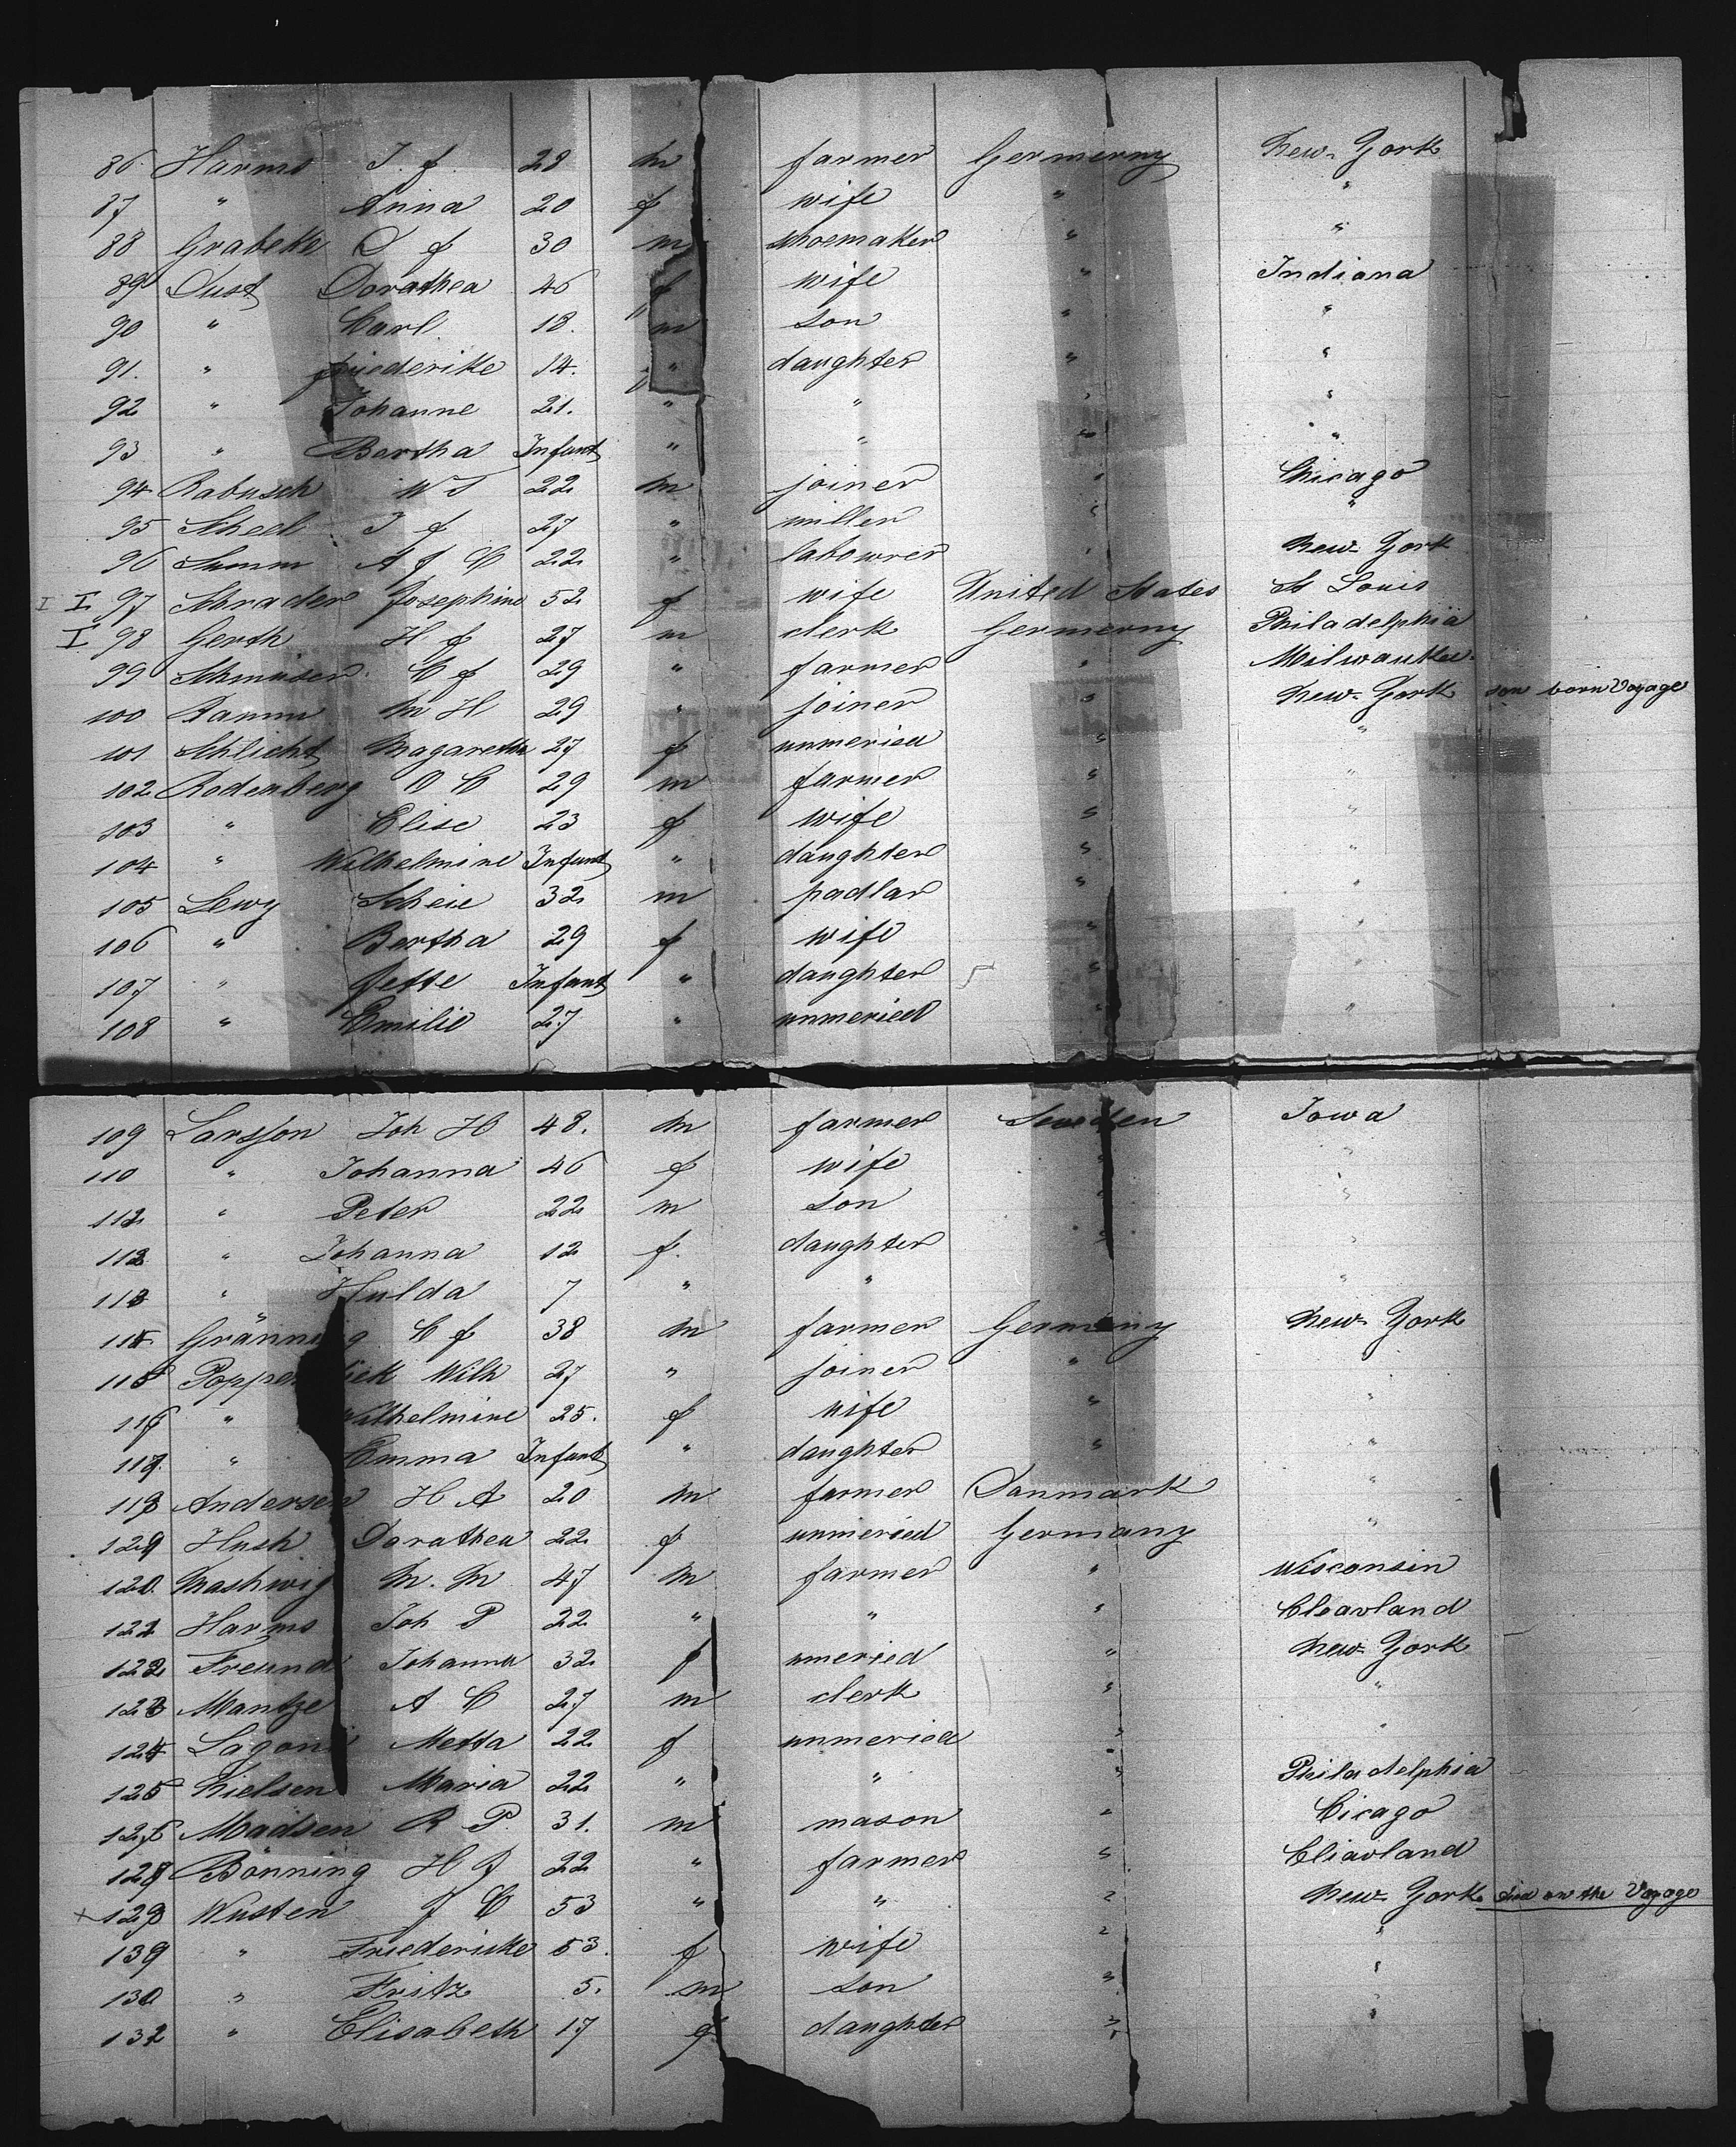 86 Harms J. f. 28 m farmer Germerny New-York
87 " Anna 20 f wife " "
88 Grabeke D f 30 m shoemaker " "
89 Dust Dorathea 46 f wife " Indiana
90 " Carl 18. m son " "
91. " friederike 14. " daughter " "
92 " Johanne 21. " " " "
93 " Bertha Infant " " " "
94 Rabusch W J 22 m joiner " Chicago
95 Scheel J f 27 " miller " "
96 Summ A f C 22 " labowrer " New-York
I I 97 Schrader Josephine 52 f wife United States St Louis
I 98 Gerth H f 27 m clerk Germerny Philadelphia
99 Schmüser. C f 29 " farmer " Milwaukee.
100 Ramm M H 29 " joiner " New-York son born Voyage
101 Schlicht Magaretha 27 f unmeried " "
102 Rodenberg O C 29 m farmer " "
103 " Elise 23 f wife " "
104 " Wilhelmine Infant " daughter " "
105 Lewy Scheie 32 m padlar " "
106 " Bertha 29 f wife " "
107 " Jette Infant " daughter " "
108 " Emilie 27 " unmeried " "
109 Larsson Joh H 48. m farmer Sweden Iowa
110 " Johanna 46 f wife " "
112 " Peter 22 m son " "
113 " Johanna 12 f. daughter " "
113 " Hulda 7 " " "
114 Gränning C f 38 m farmer Germany New-York
115 Poppe iek Wilh 27 " joiner " "
116 " Wilhelmine 25. f wife " "
118. " Emma Infant " daughter " "
119 Andersen H A 20 m farmer Danmark "
129 Hush Dorathea 22 f unmeried Germany "
120. Mashwig M. M 47 m farmer " Wisconsin
122 Harms Joh P 22 " " " Cleavland
122 Freund Johanna 32 f umeried " New-York
123 Mantze A C 27 m clerk " "
124 Lagoni Metta 22 f unmeried " "
125 Nielsen Maria 22 " " " Philadelphia
126 Madsen R P. 31. m mason " Cicago
128 Bönning H J 22 " farmer " Cliavland
x 129 Wusten J C 53 " " " New-York died on the Voyage
139 " Friedericke 53. f wife " "
130 " Fritz 5. m son " "
132 " Elisabeth 17 f daughter " "